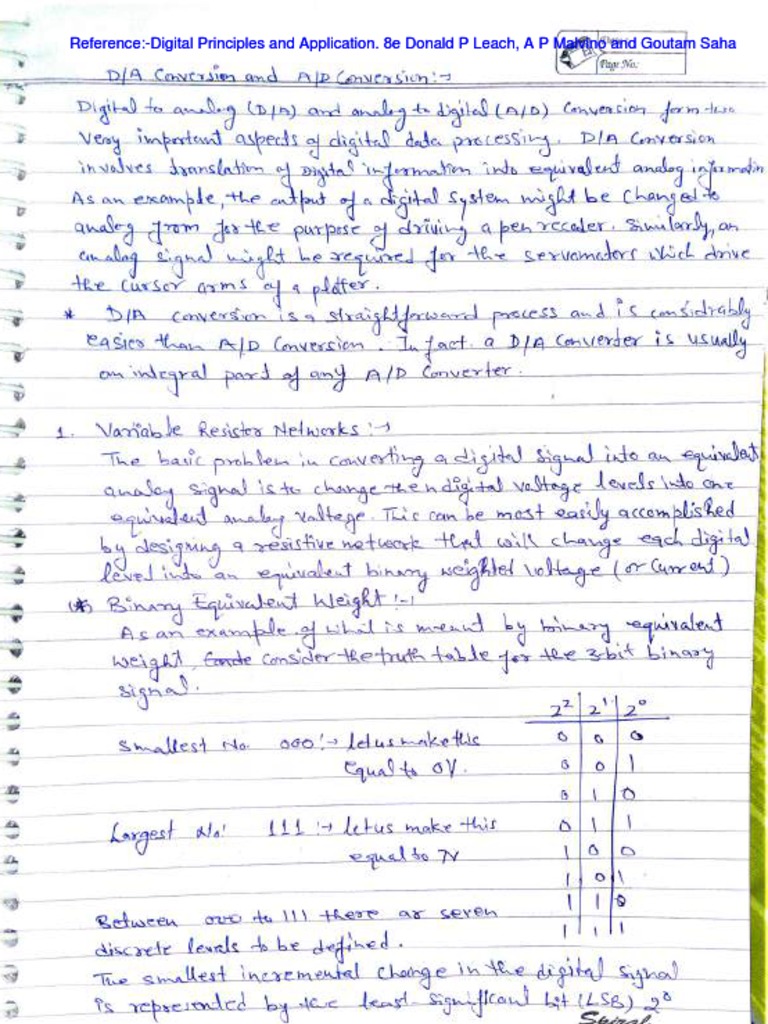 Reference:-Digital Principles and Application. 8e Donald P Leach, A P Malvino and Goutam Saha
Page No.:
D/A Conversion and A/D Conversion :→
Digital to analog (D/A) and analog to digital (A/D) Conversion form two
very important aspects of digital data processing. D/A Conversion
involves translation of Digital information into equivalent analog information
As an example, the output of a digital system might be changed to
analog from for the purpose of driving a pen recoder. Similarly, an
analog signal might be required for the servomotors which drive
the cursor arms of a plotter.
* D/A conversion is a straightforward process and is considrably
easier than A/D Conversion. In fact a D/A Converter is usually
an integral part of any A/D Converter.
1. Variable Resistor Networks :→
The basic problem in converting a digital signal into an equivalent
analog signal is to change the n digital voltage levels into one
equivalent analog voltage. This can be most easily accomplished
by designing a resistive network that will change each digital
level into an equivalent binary weighted voltage (or Current)
(*) Binary Equivalent Weight :→
As an example of what is meant by binary equivalent
weight, consider the truth table for the 3-bit binary
signal.
2² 2¹ 2⁰
Smallest No. 000 :→ let us make this 0 0 0
Equal to 0V. 0 0 1
0 1 0
Largest No: 111 :→ let us make this 0 1 1
equal to 7V 1 0 0
1 0 1
1 1 0
Between 000 to 111 there ar seven 1 1 1
discrete levels to be defined.
The smallest incremental change in the digital signal
is represented by the least-significant bit (LSB) 2⁰
Spiral